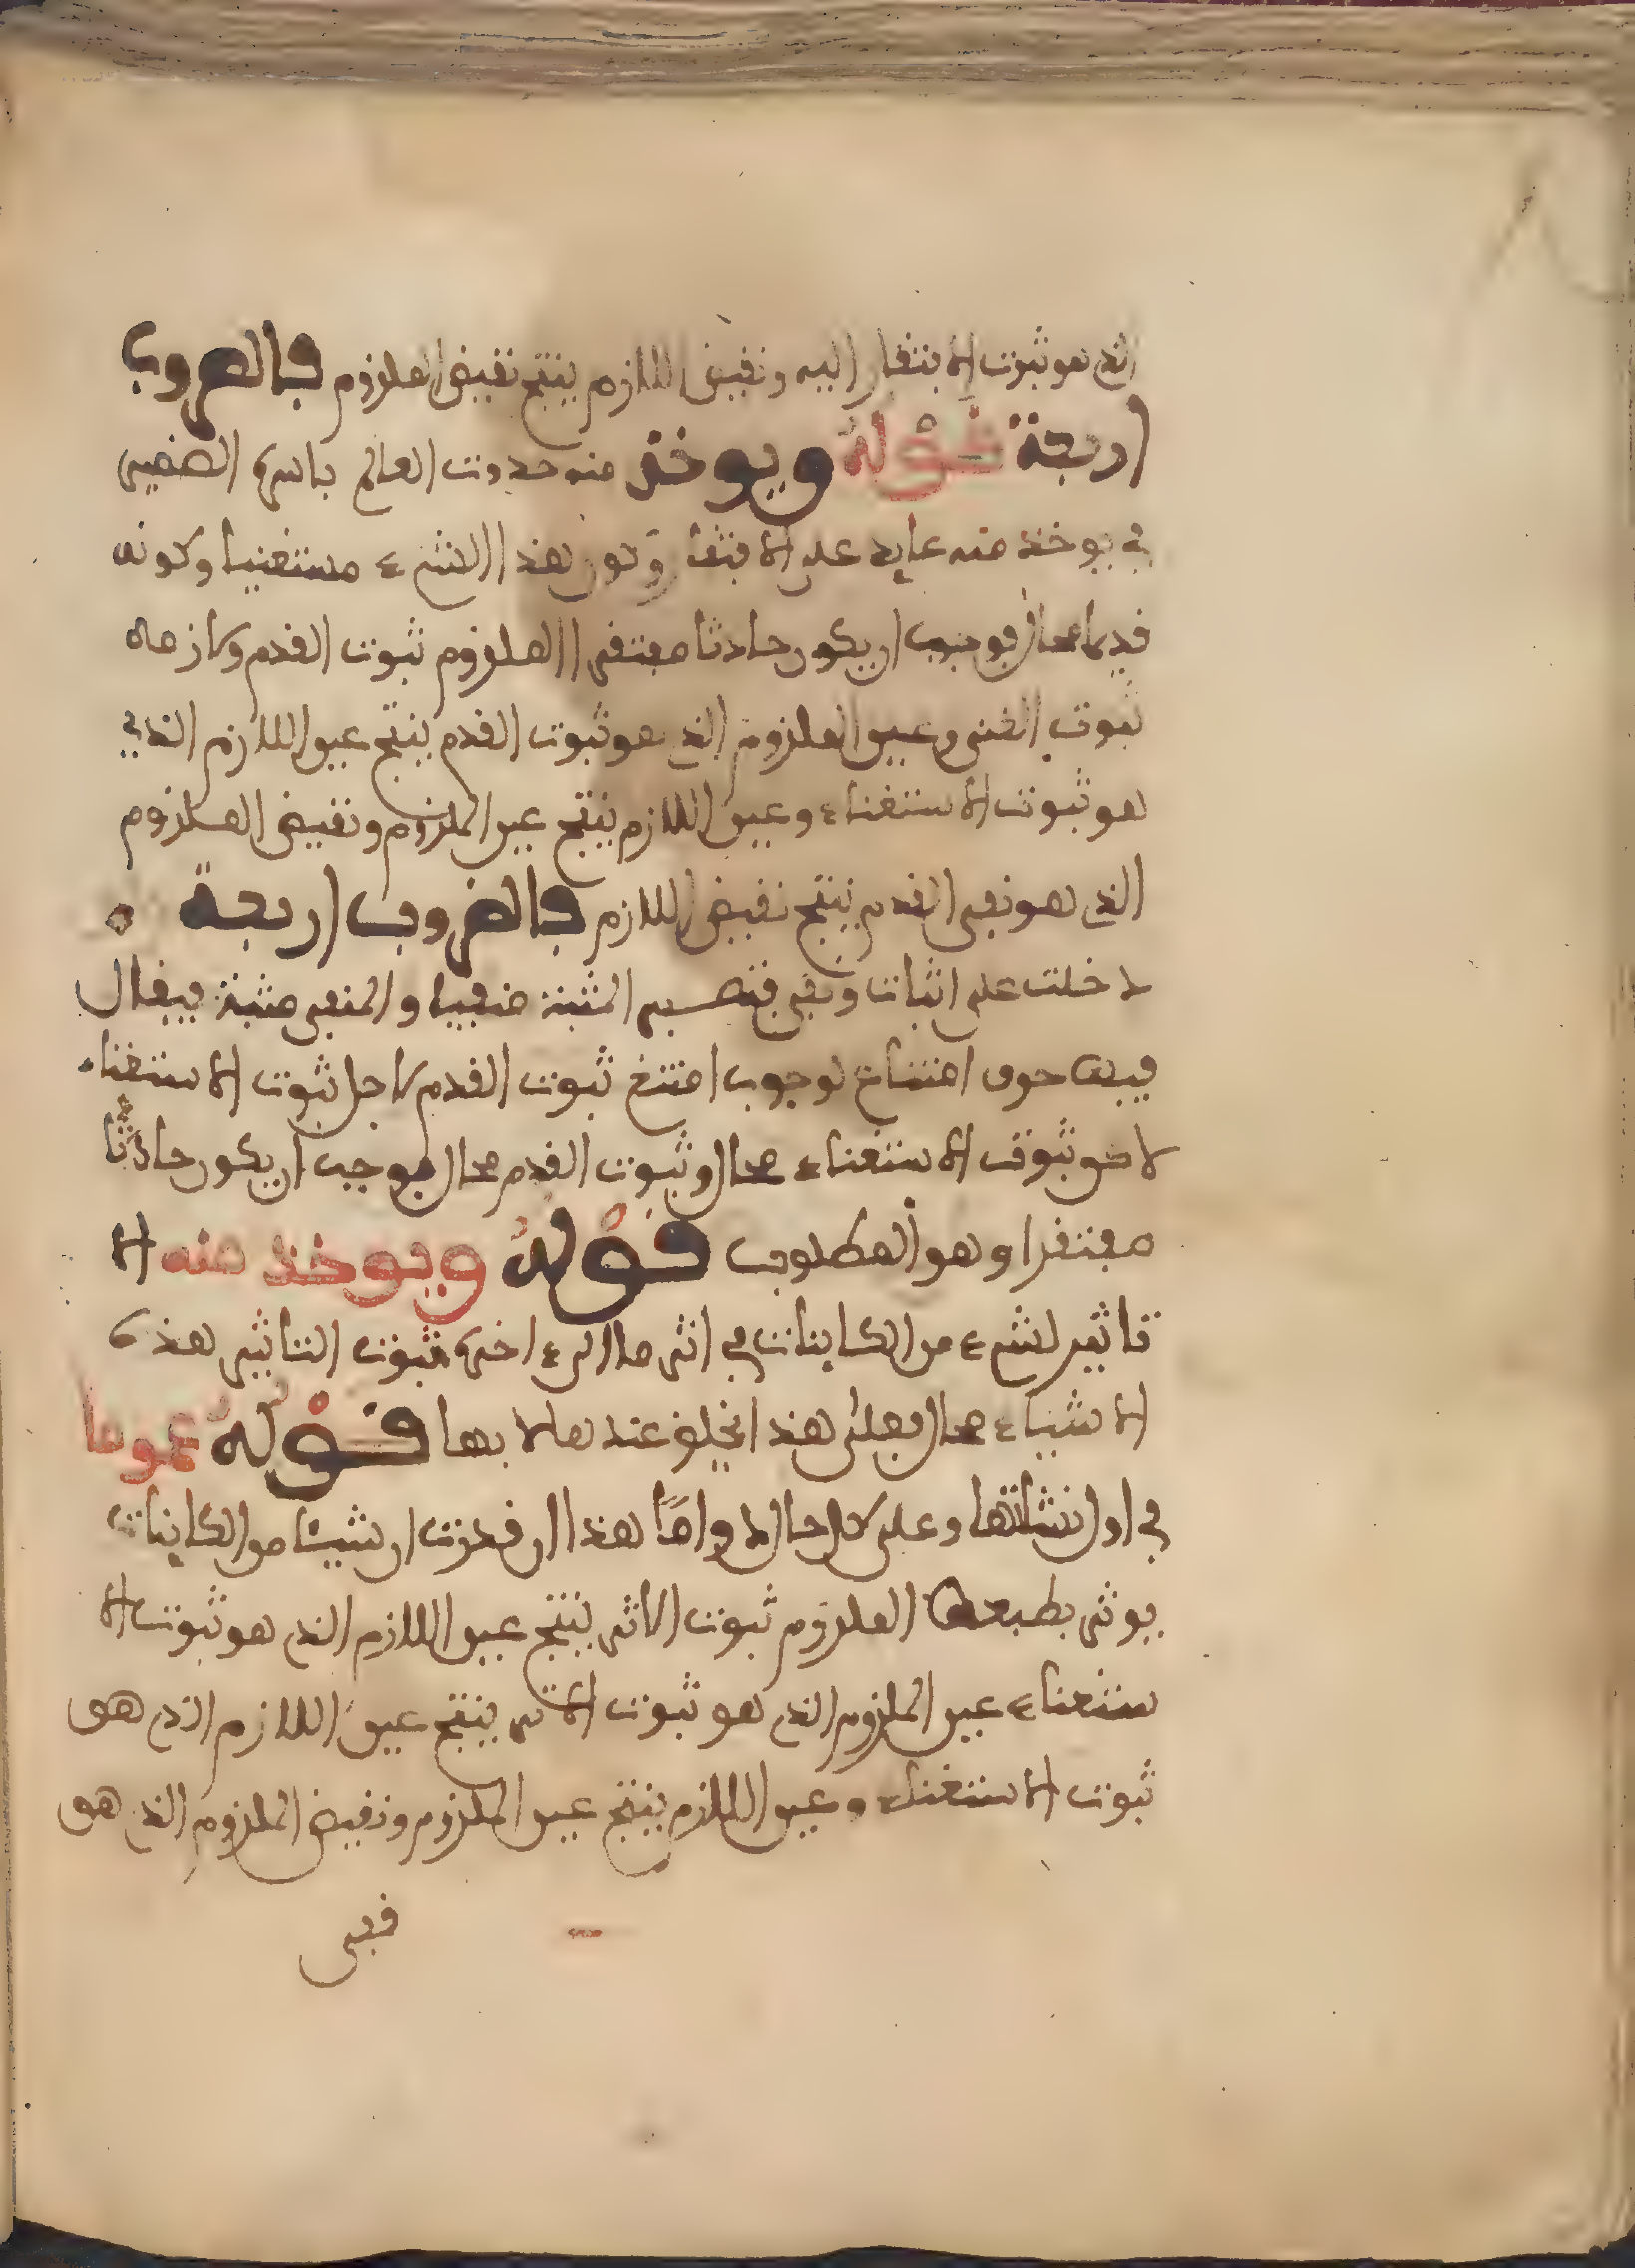 الذي هو ثبوت الافتقار اليه ونقيض اللازم ينتج نقيض الملزوم فالضروب
اربعة قوله ويوخذ منه حدوث العالم باسره الضمير
في يوخذ منه عايد على الافتقار وكون هذا الشيء مستغنيا وكونه
قديما محال فوجب ان يكون حادثا مفتقرا الملزوم ثبوت القدم ولازمه
ثبوت الغنى وعين الملزوم الذي هو ثبوت القدم ينتج عين اللازم الذي
هو ثبوت الاستغناء وعين اللازم ينتج عين الملزوم ونقيض الملزوم
الذي هو نفي القدم ينتج نقيض اللازم فالضروب اربعة
دخلت على اثبات ونفي فتصير المثبتة منفيا والمنفي مثبتة فيقال
فيها حرف امتناع لوجوب امتنع ثبوت القدم لاجل ثبوت الاستغناء
لاكن ثبوت الاستغناء محال وثبوت القدم محال فوجب ان يكون حادثا
مفتقرا وهو المطلوب قوله ويوخذ منه ا لا
تاثير لشيء من الكاينات في اثر ما الى ءاخره ثبوت التاثير لهذه
الاشياء محال فعلى هذا يخلق عندها لا بها قوله عموما
في اول نشاتها وعلى كل حال دواما هذا ان قدرت ان شيئا من الكاينات
يوثر بطبعه الملزوم ثبوت الاثر ينتج عين اللازم الذي هو ثبوت الا
ستغناء عين الملزوم الذي هو ثبوت الاثر ينتج عين اللازم الذي هو
ثبوت الاستغناء وعين اللازم ينتج عين الملزوم ونقيض الملزوم الذي هو
نفي